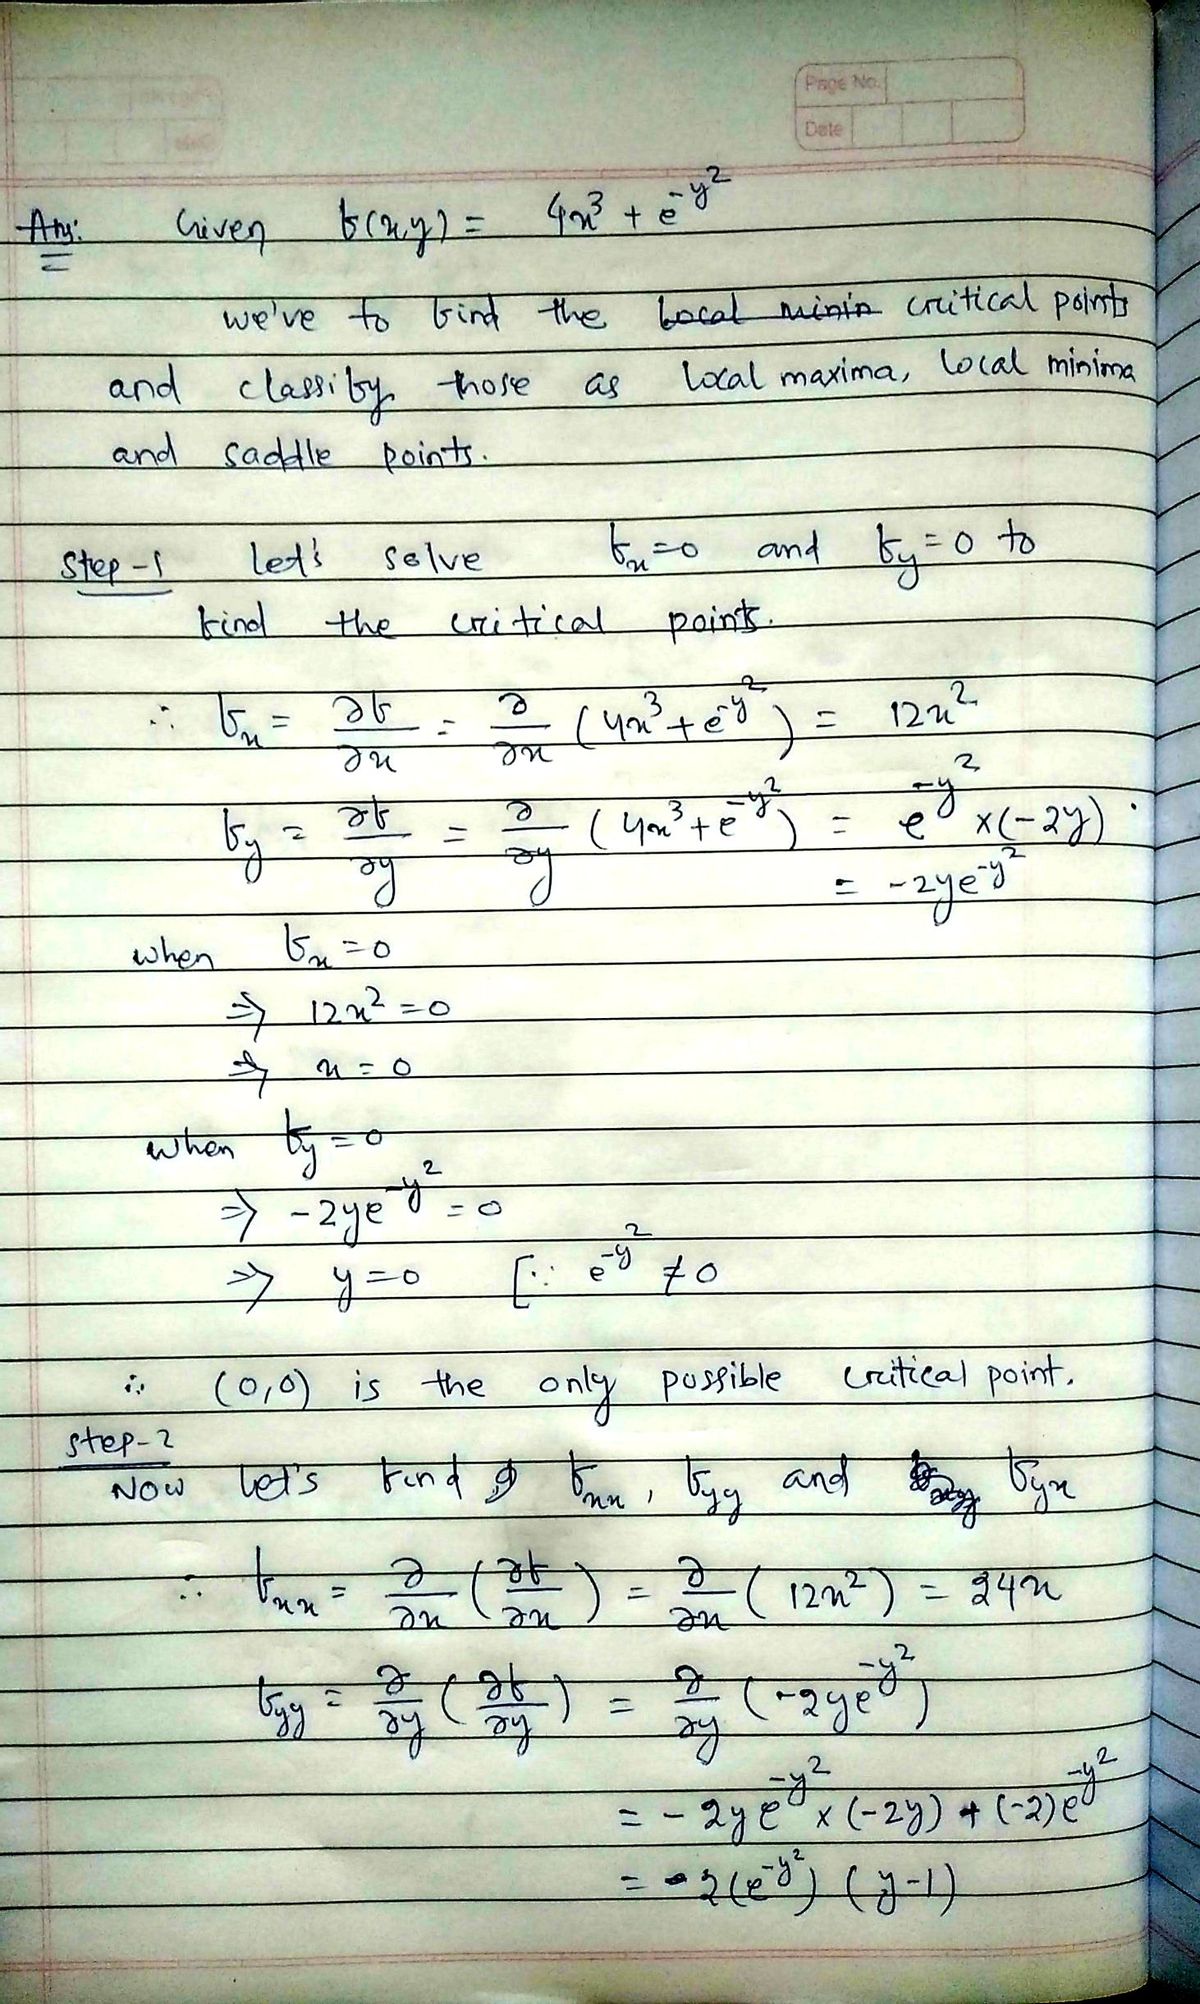 Page No.
Date
Ans: Given f(x,y) = 4x³ + e^{-y²}
we've to find the local minim critical points
and classify those as local maxima, local minima
and saddle points.
Step-1 Let's solve f_x=0 and f_y=0 to
find the critical points.
∴ f_x = ∂f/∂x = ∂/∂x (4x³+e^{-y²}) = 12x²
f_y = ∂f/∂y = ∂/∂y (4x³+e^{-y²}) = e^{-y²} ×(-2y).
= -2ye^{-y²}
when f_x=0
⇒ 12x²=0
⇒ x=0
when f_y=0
⇒ -2ye^{-y²} =0
⇒ y=0 [∵ e^{-y²} ≠0
∴ (0,0) is the only possible critical point.
Step-2
Now Let's find f_xx, f_yy and f_yx
∴ f_xx = ∂/∂x (∂f/∂x) = ∂/∂x (12x²) = 24x
f_yy = ∂/∂y (∂f/∂y) = ∂/∂y (-2ye^{-y²})
= -2ye^{-y²} × (-2y) + (-2)e^{-y²}
= -2(e^{-y²}) (y-1)